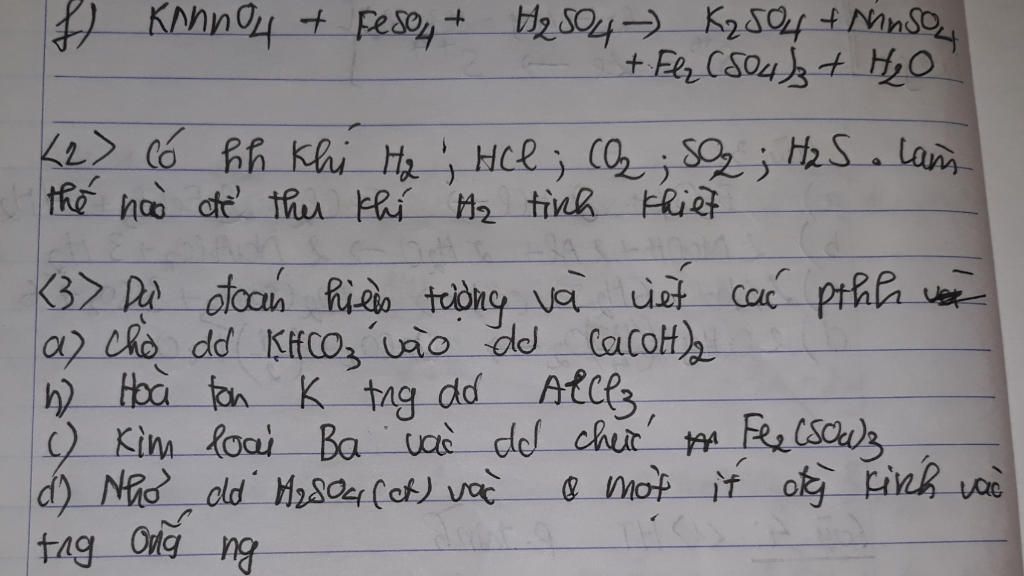 f) KMnO4 + FeSO4 + H2SO4 → K2SO4 + MnSO4
+ Fe2(SO4)3 + H2O
<2> Có hh khí H2 ; HCl ; CO2 ; SO2 ; H2S . Làm
thế nào để thu khí H2 tinh khiết
<3> Dự đoán hiện tượng và viết các pthh
a) Cho dd KHCO3 vào dd Ca(OH)2
b) Hoà tan K tng dd AlCl3
c) Kim loại Ba vào dd chứa Fe2(SO4)3
d) Nhỏ dd H2SO4(đ) vào một ít đg kính vào
tng ống ng